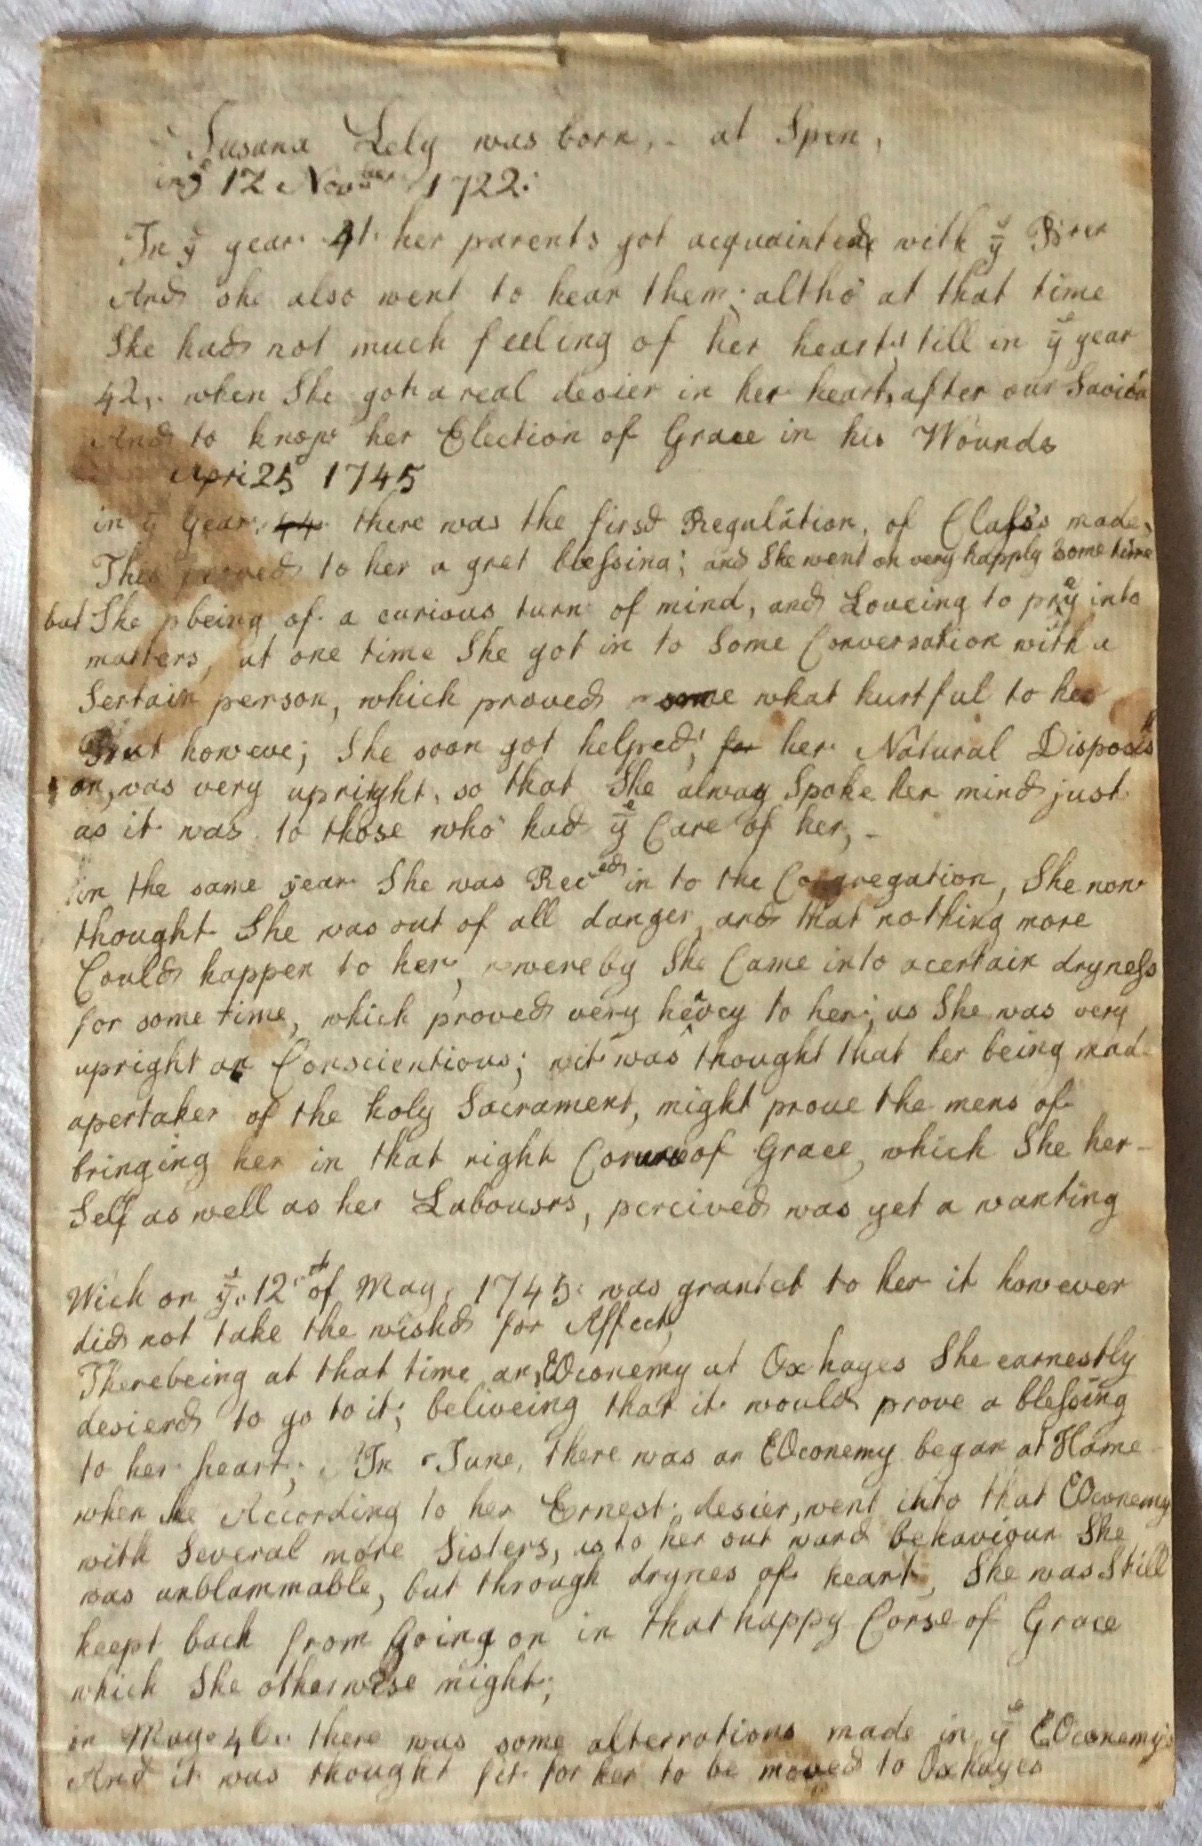 Susana Lely was born, - at Spen,
in yͤ 12 Novber 1722:
In yͤ year 41 her parents got acquainted with yͤ Bren
And she also went to hear them; altho' at that time
She had not much feeling of her heart, till in yͤ year
42, when She got a real desier in her heart, after our Saviour
And to know her Election of Grace in his Wounds
Apri 25 1745
in yͤ year 44 there was the first Regulation, of Class's made,
This proved to her a gret blessing; and She went on very happly some time
but She being of a curious turn of mind, and Loveing to pry into
matters, at one time She got in to Some Conversation with a
Sertain person, which proved some what hurtful to her
But howeve; She soon got helped, for her Natural Disposis
on, was very upright, so that She alway Spoke her mind just
as it was to those who had yͤ Care of her, -
in the same year She was Reced in to the Congregation, She now
thought She was out of all danger, and that nothing more
Could happen to her, wereby She Came into a certain dryness
for some time, which proved very heavey to her; as She was very
upright an Conscientious; it was thought that her being made
apertaker of the holy Sacrament, might prove the mens of
bringing her in that right Corse of Grace, which She her-
Self as well as her Labousrs, percived was yet a wanting
Wich on yͤ 12th of May, 1745 was grantet to her it however
did not take the wishd for Affect,
Therebeing at that time an EOconemy at Oxhayes She earnestly
desierd to go to it; beliveing that it would prove a blessing
to her heart; In June, there was an EOconemy began at Home
when he According to her Ernest desier, went into that EOconemy
with Several more Sisters, as to her out ward behaviour She
was unblammable, but through drynes of heart, She was Still
keept back from Going on in that happy Corse of Grace
which She otherwise might;
in May 46 there was some alterrations made in yͤ EOconemy's
And it was thought fit for her to be moved to Oxhayes